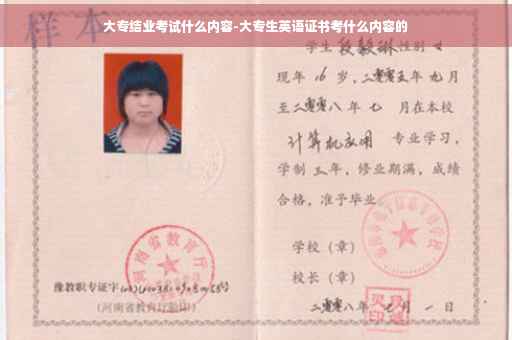 大专结业考试什么内容-大专生英语证书考什么内容的
样本
学生 段毅琳 性别 女
现年 16 岁,二零零五年 九 月
至二零零八 年 七 月在本校
计算机应用 专业学习,
学制 三 年,修业期满,成绩
合格,准予毕业。
学校(章)
校长(章)
二零零八年 七 月 一 日
河南省教育厅
豫教职专证字
(河南省教育厅验印)